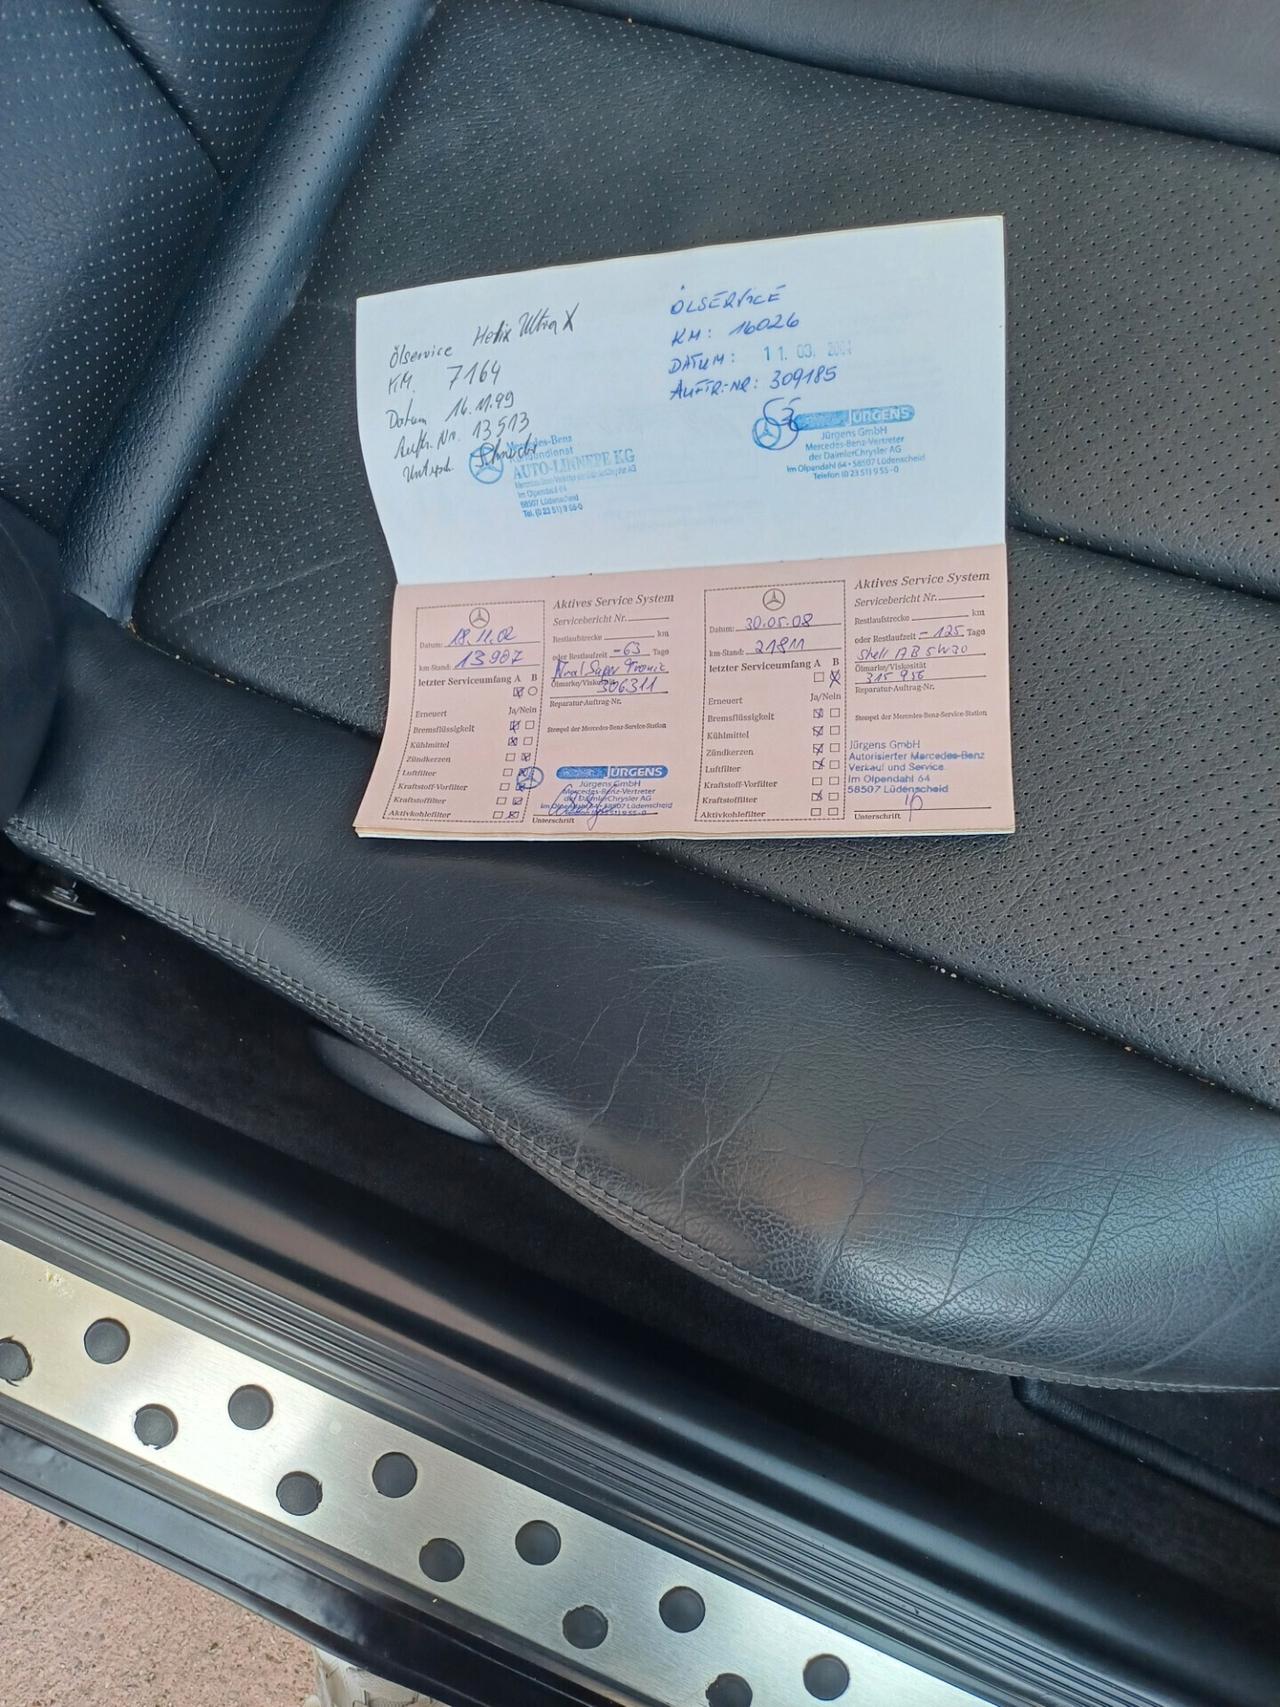 Ölservice Helix Ultra X
KM. 7164
Datum 16.11.99
Auftr. Nr. 13513
Untersch.
Mercedes-Benz
Kundendienst
AUTO-LINNEPE KG
Im Olpendahl 64
58507 Lüdenscheid
Tel. (0 23 51) 9 55-0
ÖLSERVICE
KM: 16026
DATUM: 11. 03.
AUFTR.-NR: 309185
JÜRGENS
Jürgens GmbH
Mercedes-Benz-Vertreter
der DaimlerChrysler AG
Im Olpendahl 64 • 58507 Lüdenscheid
Telefon (0 23 51) 9 55 - 0
Datum: 18.11.02
km-Stand: 13907
letzter Serviceumfang A B
Erneuert Ja/Nein
Bremsflüssigkeit
Kühlmittel
Zündkerzen
Luftfilter
Kraftstoff-Vorfilter
Kraftstofffilter
Aktivkohlefilter
Aktives Service System
Servicebericht Nr.
Restlaufstrecke km
oder Restlaufzeit -63 Tage
Super Tronic
Ölmarke/Viskosität
306311
Reparatur-Auftrag-Nr.
Stempel der Mercedes-Benz-Service-Station
JÜRGENS
Jürgens GmbH
Mercedes-Benz-Vertreter
der DaimlerChrysler AG
Im Olpendahl 64 • 58507 Lüdenscheid
Unterschrift
Datum: 30.05.08
km-Stand: 21811
letzter Serviceumfang A B
Erneuert Ja/Nein
Bremsflüssigkeit
Kühlmittel
Zündkerzen
Luftfilter
Kraftstoff-Vorfilter
Kraftstofffilter
Aktivkohlefilter
Aktives Service System
Servicebericht Nr.
Restlaufstrecke km
oder Restlaufzeit - 125 Tage
Shell AB 5W30
Ölmarke/Viskosität
315 956
Reparatur-Auftrag-Nr.
Stempel der Mercedes-Benz-Service-Station
Jürgens GmbH
Autorisierter Mercedes-Benz
Verkauf und Service
Im Olpendahl 64
58507 Lüdenscheid
Unterschrift